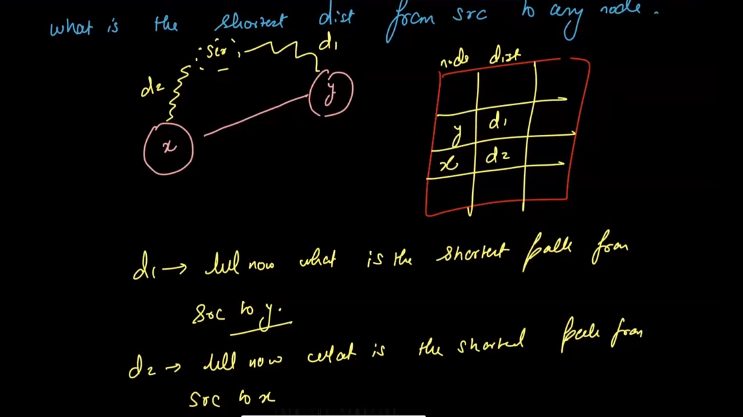 what is the shortest dist from src to any node.
src
d1
d2
y
x
node dist
y d1
x d2
d1 → till now what is the shortest path from
src to y.
d2 → till now what is the shortest path from
src to x